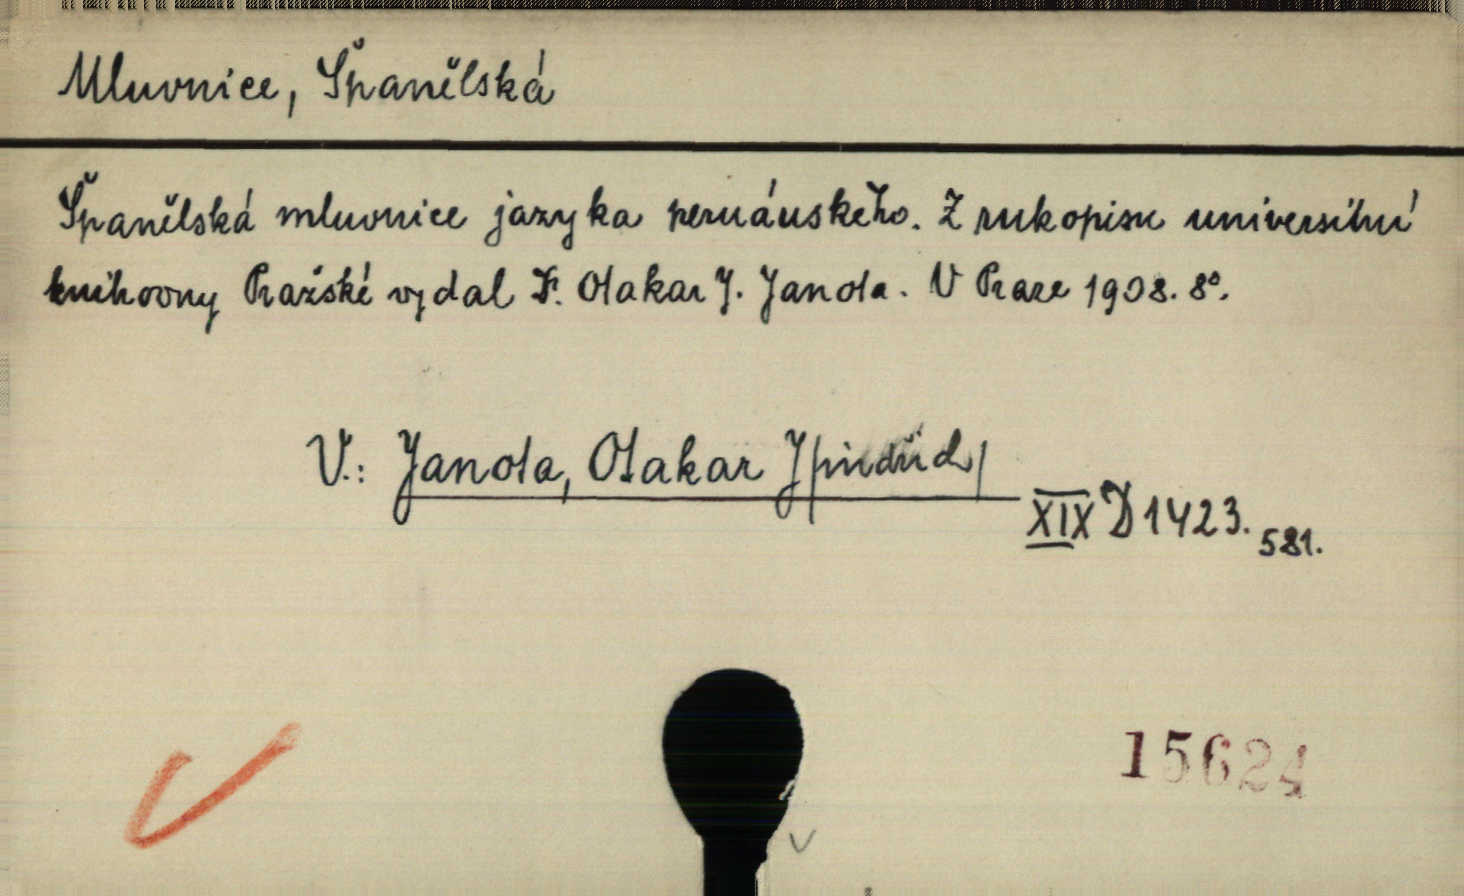 Mluvnice, Španělská
Španělská mluvnice jazyka peruáuského. Z rukopisu universitní
knihovny Pražské vydal Fr. Otakar J. Janota. V Praze 1908. 8°.
V.: Janota, Otakar J/indřich/
XIX D 1423.
581.
15624